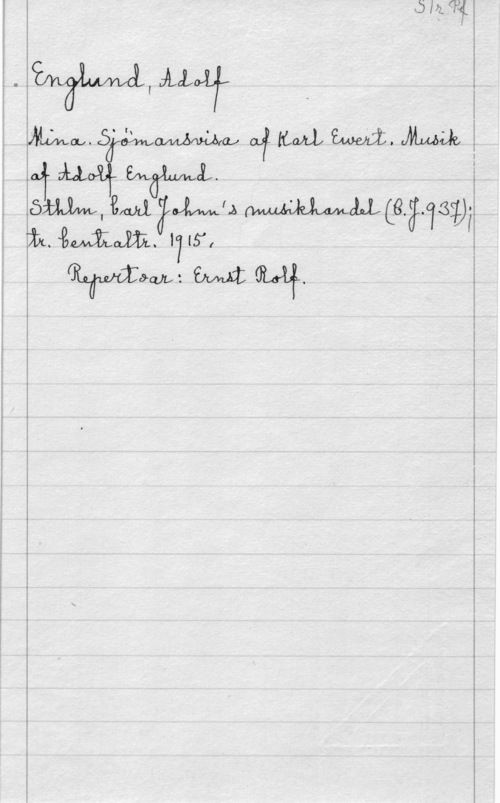 Str. Pf
Englund, Adolf
Mina. Sjömansvisa af Karl Ewert. Musik
af Adolf Englund.
Sthlm, Carl Johnn's musikhandel (C.J.937);
tr. Centraltr. 1915.
Repertoar: Ernst Rolf.